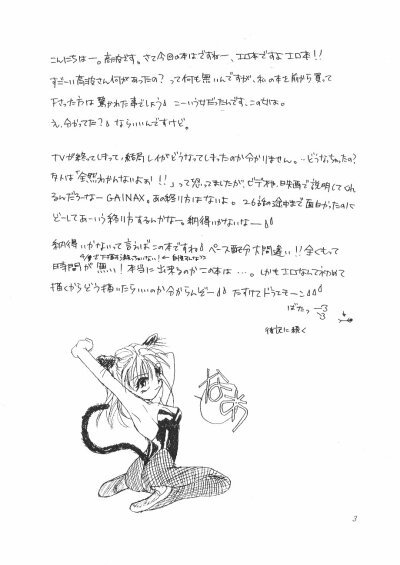 こんにちはー。高波です。さて今回の本はですねー、エロ本ですよエロ本!!
すごーい高波さん何があったの？って何も無いんですが、私の本を前から買って
下さった方は驚かれた事でしょう こーいう女だったんです、このヒトは。
え、分かってた？ ならいいんですけど。
TVが終ってしまって、結局レイがどうなってしまったのか分かりません。…どうなっちゃったの？
タメは"全然わかんないよぉ!!"って思ってましたが、ビデオや、映画で説明してくれ
るんだろーなー GAINAX。あの終り方はないよ。26話の途中まで面白かったのに
どーしてあーいう終り方するんかなー。納得いかないなー
納得いかないって言えばこの本ですね ペース配分大間違い!!全くもって
時間が無い！本当に出来るのかこの本は…。しかもエロなんて初めて
描くからどう描いたらいいのか分からんぞー たすけてドラえもーン
ぱたっ
後記に続く
3